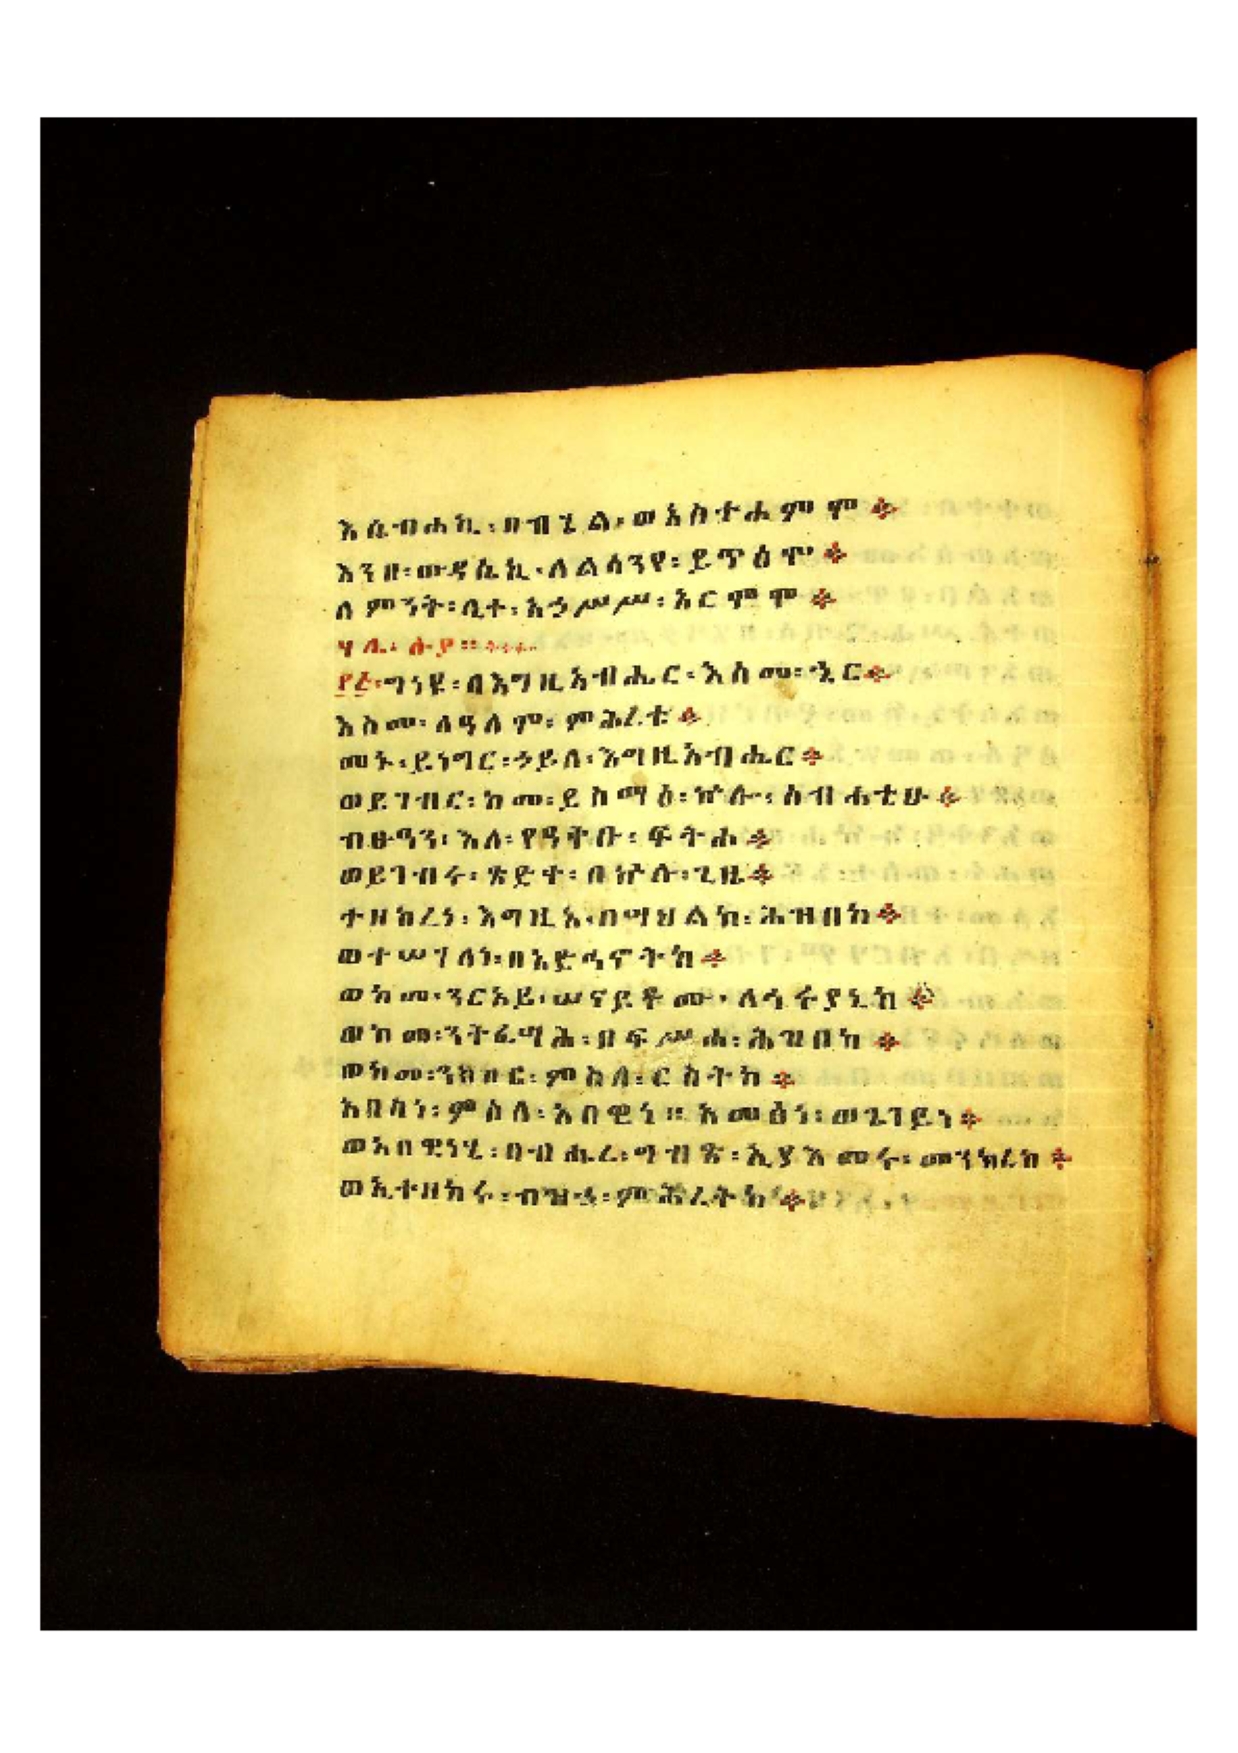 እሴብሐኪ፡በብሂል፡ወአስተሐምሞ፨
እንዘ፡ውዳሴኪ፡ለልሳንየ፡ይጥዕሞ፨
ለምንት፡ሊተ፡አኃሥሥ፡አርምሞ፨
ሃሌ፡ሉያ፡፡
፻፭፡ግነዩ፡በእግዚአብሔር፡እስመ፡ኄር፨
እስመ፡ለዓለም፡ምሕረቱ፨
መኑ፡ይነግር፡ኃይለ፡እግዚአብሔር፨
ወይገብር፡ከመ፡ይስማዕ፡ኵሎ፡ስብሐቲሁ፨
ብፁዓን፡እለ፡የዓቅቡ፡ፍትሐ፨
ወይገብሩ፡ጽድቀ፡በኵሉ፡ጊዜ፨
ተዘከረነ፡እግዚአ፡በሣህልከ፡ሕዝበከ፨
ወተሣሃለነ፡በአድኅኖትከ፨
ወከመ፡ንርአይ፡ሠናይቶሙ፡ለኅሩያኒከ፨
ወከመ፡ንትፈሣሕ፡በፍሥሐ፡ሕዝበከ፨
ወከመ፡ንክበር፡ምስለ፡ርስትከ፨
አበስነ፡ምስለ፡አበዊነ፡፡አመፅነ፡ወጌገይነ፨
ወአበዊነሂ፡በብሔረ፡ግብጽ፡ኢያእመሩ፡መንክረከ፨
ወኢተዘከሩ፡ብዝኃ፡ምሕረትከ፨